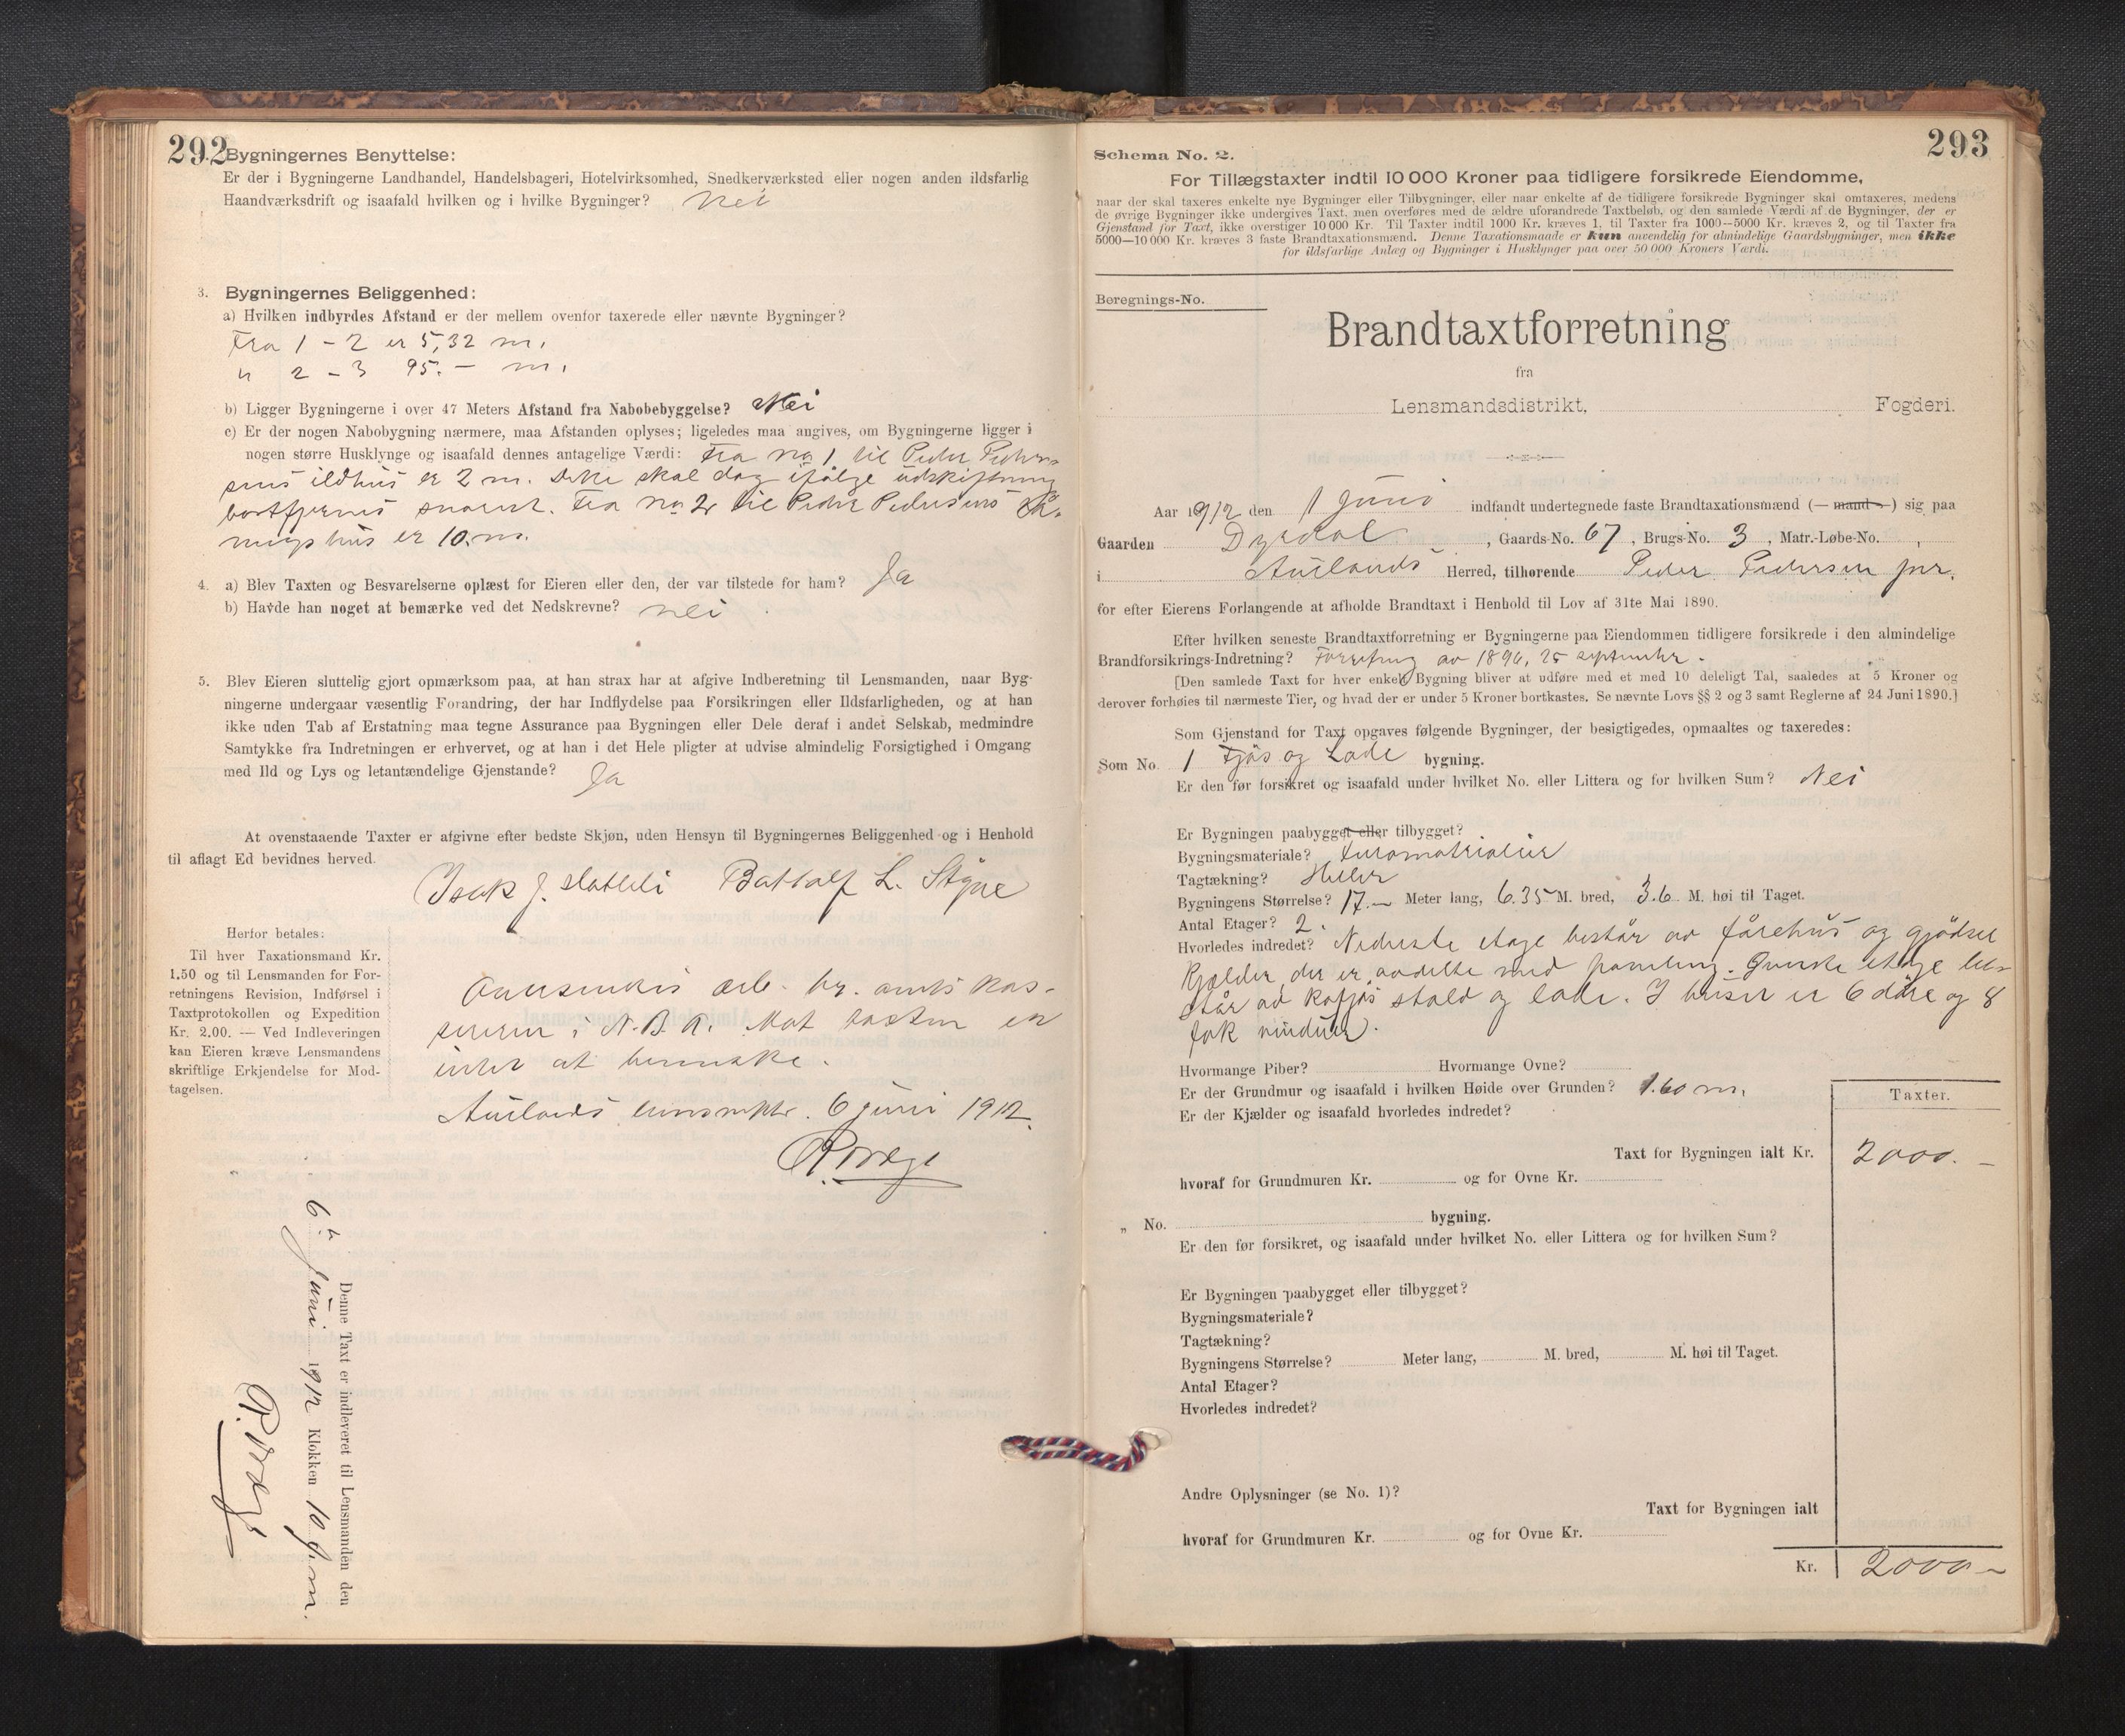 292
Bygningernes Benyttelse:
Er der i Bygningerne Landhandel, Handelsbageri, Hotelvirksomhed, Snedkerværksted eller nogen anden ildsfarlig
Haandværksdrift og isaafald hvilken og i hvilke Bygninger? Nei
3. Bygningernes Beliggenhed:
a) Hvilken indbyrdes Afstand er der mellem ovenfor taxerede eller nævnte Bygninger?
Fra 1 - 2 er 5,32 m.
" 2 - 3 95.- m.
b) Ligger Bygningerne i over 47 Meters Afstand fra Nabobebyggelse? Nei
c) Er der nogen Nabobygning nærmere, maa Afstanden oplyses; ligeledes maa angives, om Bygningerne ligger i
nogen større Husklynge og isaafald dennes antagelige Værdi: Fra no 1 til Peder Peder-
sens ildhus er 2 m. Dette skal dog ifølge udskiftning
bortfjernes snarest. Fra no 2 til Peder Pedersens
er 10. m.
4. a) Blev Taxten og Besvarelserne oplæst for Eieren eller den, der var tilstede for ham? Ja
b) Havde han noget at bemærke ved det Nedskrevne? nei
5. Blev Eieren sluttelig gjort opmærksom paa, at han strax har at afgive Indberetning til Lensmanden, naar Byg-
ningerne undergaar væsentlig Forandring, der har Indflydelse paa Forsikringen eller Ildsfarligheden, og at han
ikke uden Tab af Erstatning maa tegne Assurance paa Bygningen eller Dele deraf i andet Selskab, medmindre
Samtykke fra Indretningen er erhvervet, og at han i det Hele pligter at udvise almindelig Forsigtighed i Omgang
med Ild og Lys og letantændelige Gjenstande? Ja
At ovenstaaende Taxter er afgivne efter bedste Skjøn, uden Hensyn til Bygningernes Beliggenhed og i Henhold
til aflagt Ed bevidnes herved.
Isak J. L.
Herfor betales:
Til hver Taxationsmand Kr.
1.50 og til Lensmanden for For-
retningens Revision, Indførsel i
Taxtprotokollen og Expedition
Kr. 2.00. — Ved Indleveringen
kan Eieren kræve Lensmandens
skriftlige Erkjendelse for Mod-
tagelsen.
Oversendes ærb. hr. amtskas-
sereren i N. B. A. Mot taxten er
intet at bemerke.
Aurlands lensmktr. 6 juni 1912.
Denne Taxt er indleveret til Lensmanden den
6te Juni 1912 Klokken 10 f.m.
293
Schema No. 2.
For Tillægstaxter indtil 10 000 Kroner paa tidligere forsikrede Eiendomme,
naar der skal taxeres enkelte nye Bygninger eller Tilbygninger, eller naar enkelte af de tidligere forsikrede Bygninger skal omtaxeres, medens
de øvrige Bygninger ikke undergives Taxt, men overføres med de ældre uforandrede Taxtbeløb, og den samlede Værdi af de Bygninger, der er
Gjenstand for Taxt, ikke overstiger 10 000 Kr. Til Taxter indtil 1000 Kr. kræves 1, til Taxter fra 1000—5000 Kr. kræves 2, og til Taxter fra
5000—10 000 Kr. kræves 3 faste Brandtaxationsmænd. Denne Taxationsmaade er kun anvendelig for almindelige Gaardsbygninger, men ikke
for ildsfarlige Anlæg og Bygninger i Husklynger paa over 50 000 Kroners Værdi.
Beregnings-No.
Brandtaxtforretning
fra
Lensmandsdistrikt, Fogderi.
Aar 1912 den 1 Juni indfandt undertegnede faste Brandtaxationsmænd (— mand —) sig paa
Gaarden Dyrdal, Gaards-No. 67, Brugs-No. 3, Matr.-Løbe-No. ,
i Aurlands Herred, tilhørende Peder Pedersen jnr.
for efter Eierens Forlangende at afholde Brandtaxt i Henhold til Lov af 31te Mai 1890.
Efter hvilken seneste Brandtaxtforretning er Bygningerne paa Eiendommen tidligere forsikrede i den almindelige
Brandforsikrings-Indretning? Forretning av 1896, 25 september.
[Den samlede Taxt for hver enkelt Bygning bliver at udføre med et med 10 deleligt Tal, saaledes at 5 Kroner og
derover forhøies til nærmeste Tier, og hvad der er under 5 Kroner bortkastes. Se nævnte Lovs §§ 2 og 3 samt Reglerne af 24 Juni 1890.]
Som Gjenstand for Taxt opgaves følgende Bygninger, der besigtigedes, opmaaltes og taxeredes:
Som No. 1 Fjøs og Lade bygning.
Er den før forsikret og isaafald under hvilket No. eller Littera og for hvilken Sum? Nei
Er Bygningen paabygget eller tilbygget?
Bygningsmateriale? Furumaterialier
Tagtækning? Heller
Bygningens Størrelse? 17.— Meter lang, 6.35 M. bred, 3.6 M. høi til Taget.
Antal Etager? 2.
Hvorledes indredet? Nederste etage består av fårehus og gjødsel
kjælder, der er avdelte med paneling. Øverste etage be-
står av kufjøs stald og lade. I huset er 6 døre og 8
fok vinduer.
Hvormange Piber? Hvormange Ovne?
Er der Grundmur og isaafald i hvilken Høide over Grunden? 1.60 m.
Er der Kjælder og isaafald hvorledes indredet?
Taxter.
Taxt for Bygningen ialt Kr. 2000.—
hvoraf for Grundmuren Kr. og for Ovne Kr.
„ No. bygning.
Er den før forsikret, og isaafald under hvilket No. eller Littera og for hvilken Sum?
Er Bygningen paabygget eller tilbygget?
Bygningsmateriale?
Tagtækning?
Bygningens Størrelse? Meter lang, M. bred, M. høi til Taget.
Antal Etager?
Hvorledes indredet?
Andre Oplysninger (se No. 1)?
Taxt for Bygningen ialt
hvoraf for Grundmuren Kr. og for Ovne Kr.
Kr. 2000—